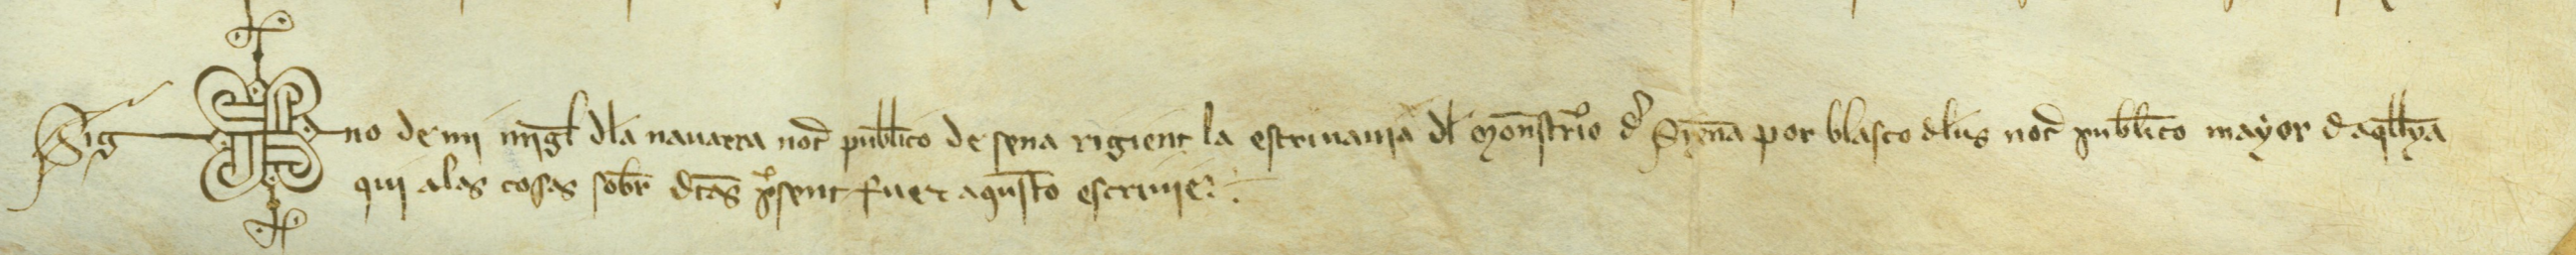 Sig no de mi migl dla nauarra not publico de sena rigient la escriuania dl monstrio d Sixena por blasco dlus not publico mayor daqllya
qui alas cosas sobr dtas psent fue r aqsto escriuie